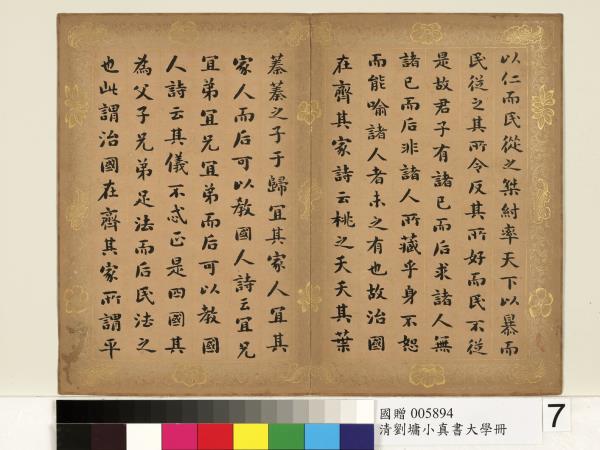 以仁而民從之桀紂率天下以暴而
民從之其所令反其所好而民不從
是故君子有諸己而后求諸人無
諸己而后非諸人所藏乎身不恕
而能喻諸人者未之有也故治國
在齊其家詩云桃之夭夭其葉
蓁蓁之子于歸宜其家人宜其
家人而后可以教國人詩云宜兄
宜弟宜兄宜弟而后可以教國
人詩云其儀不忒正是四國其
為父子兄弟足法而后民法之
也此謂治國在齊其家所謂平
國贈 005894
清劉墉小真書大學冊
7